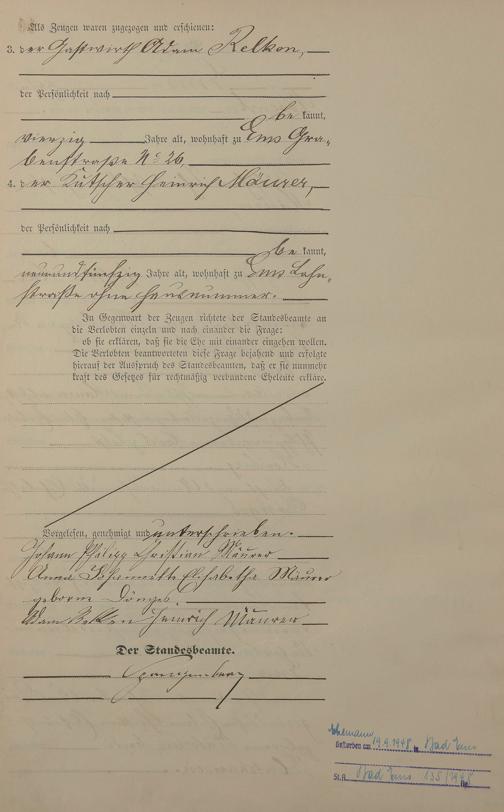 Als Zeugen waren zugezogen und erschienen:
3. der Gastwirth Adam Relkon,
der Persönlichkeit nach
be kannt,
vierzig Jahre alt, wohnhaft zu Ems Gra-
benstraße No 26
4. der Kutscher Heinrich Mäurer,
der Persönlichkeit nach
be kannt,
neunundfünfzig Jahre alt, wohnhaft zu Ems Lahn-
straße ohne Hausnummer.
In Gegenwart der Zeugen richtete der Standesbeamte an
die Verlobten einzeln und nach einander die Frage:
ob sie erklären, daß sie die Ehe mit einander eingehen wollen.
Die Verlobten beantworteten diese Frage bejahend und erfolgte
hierauf der Ausspruch des Standesbeamten, daß er sie nunmehr
kraft des Gesetzes für rechtmäßig verbundene Eheleute erkläre.
Vorgelesen, genehmigt und unterschrieben.
Johann Philipp Christian Mäurer
Anna Johannette Elisabetha Mäurer
geborne Dönges.
Adam Heinrich Mäurer
Der Standesbeamte.
Spangenberg
Ehemann
Gestorben am 19.9.1948 in Bad Ems
St.A. Bad Ems 135/1948